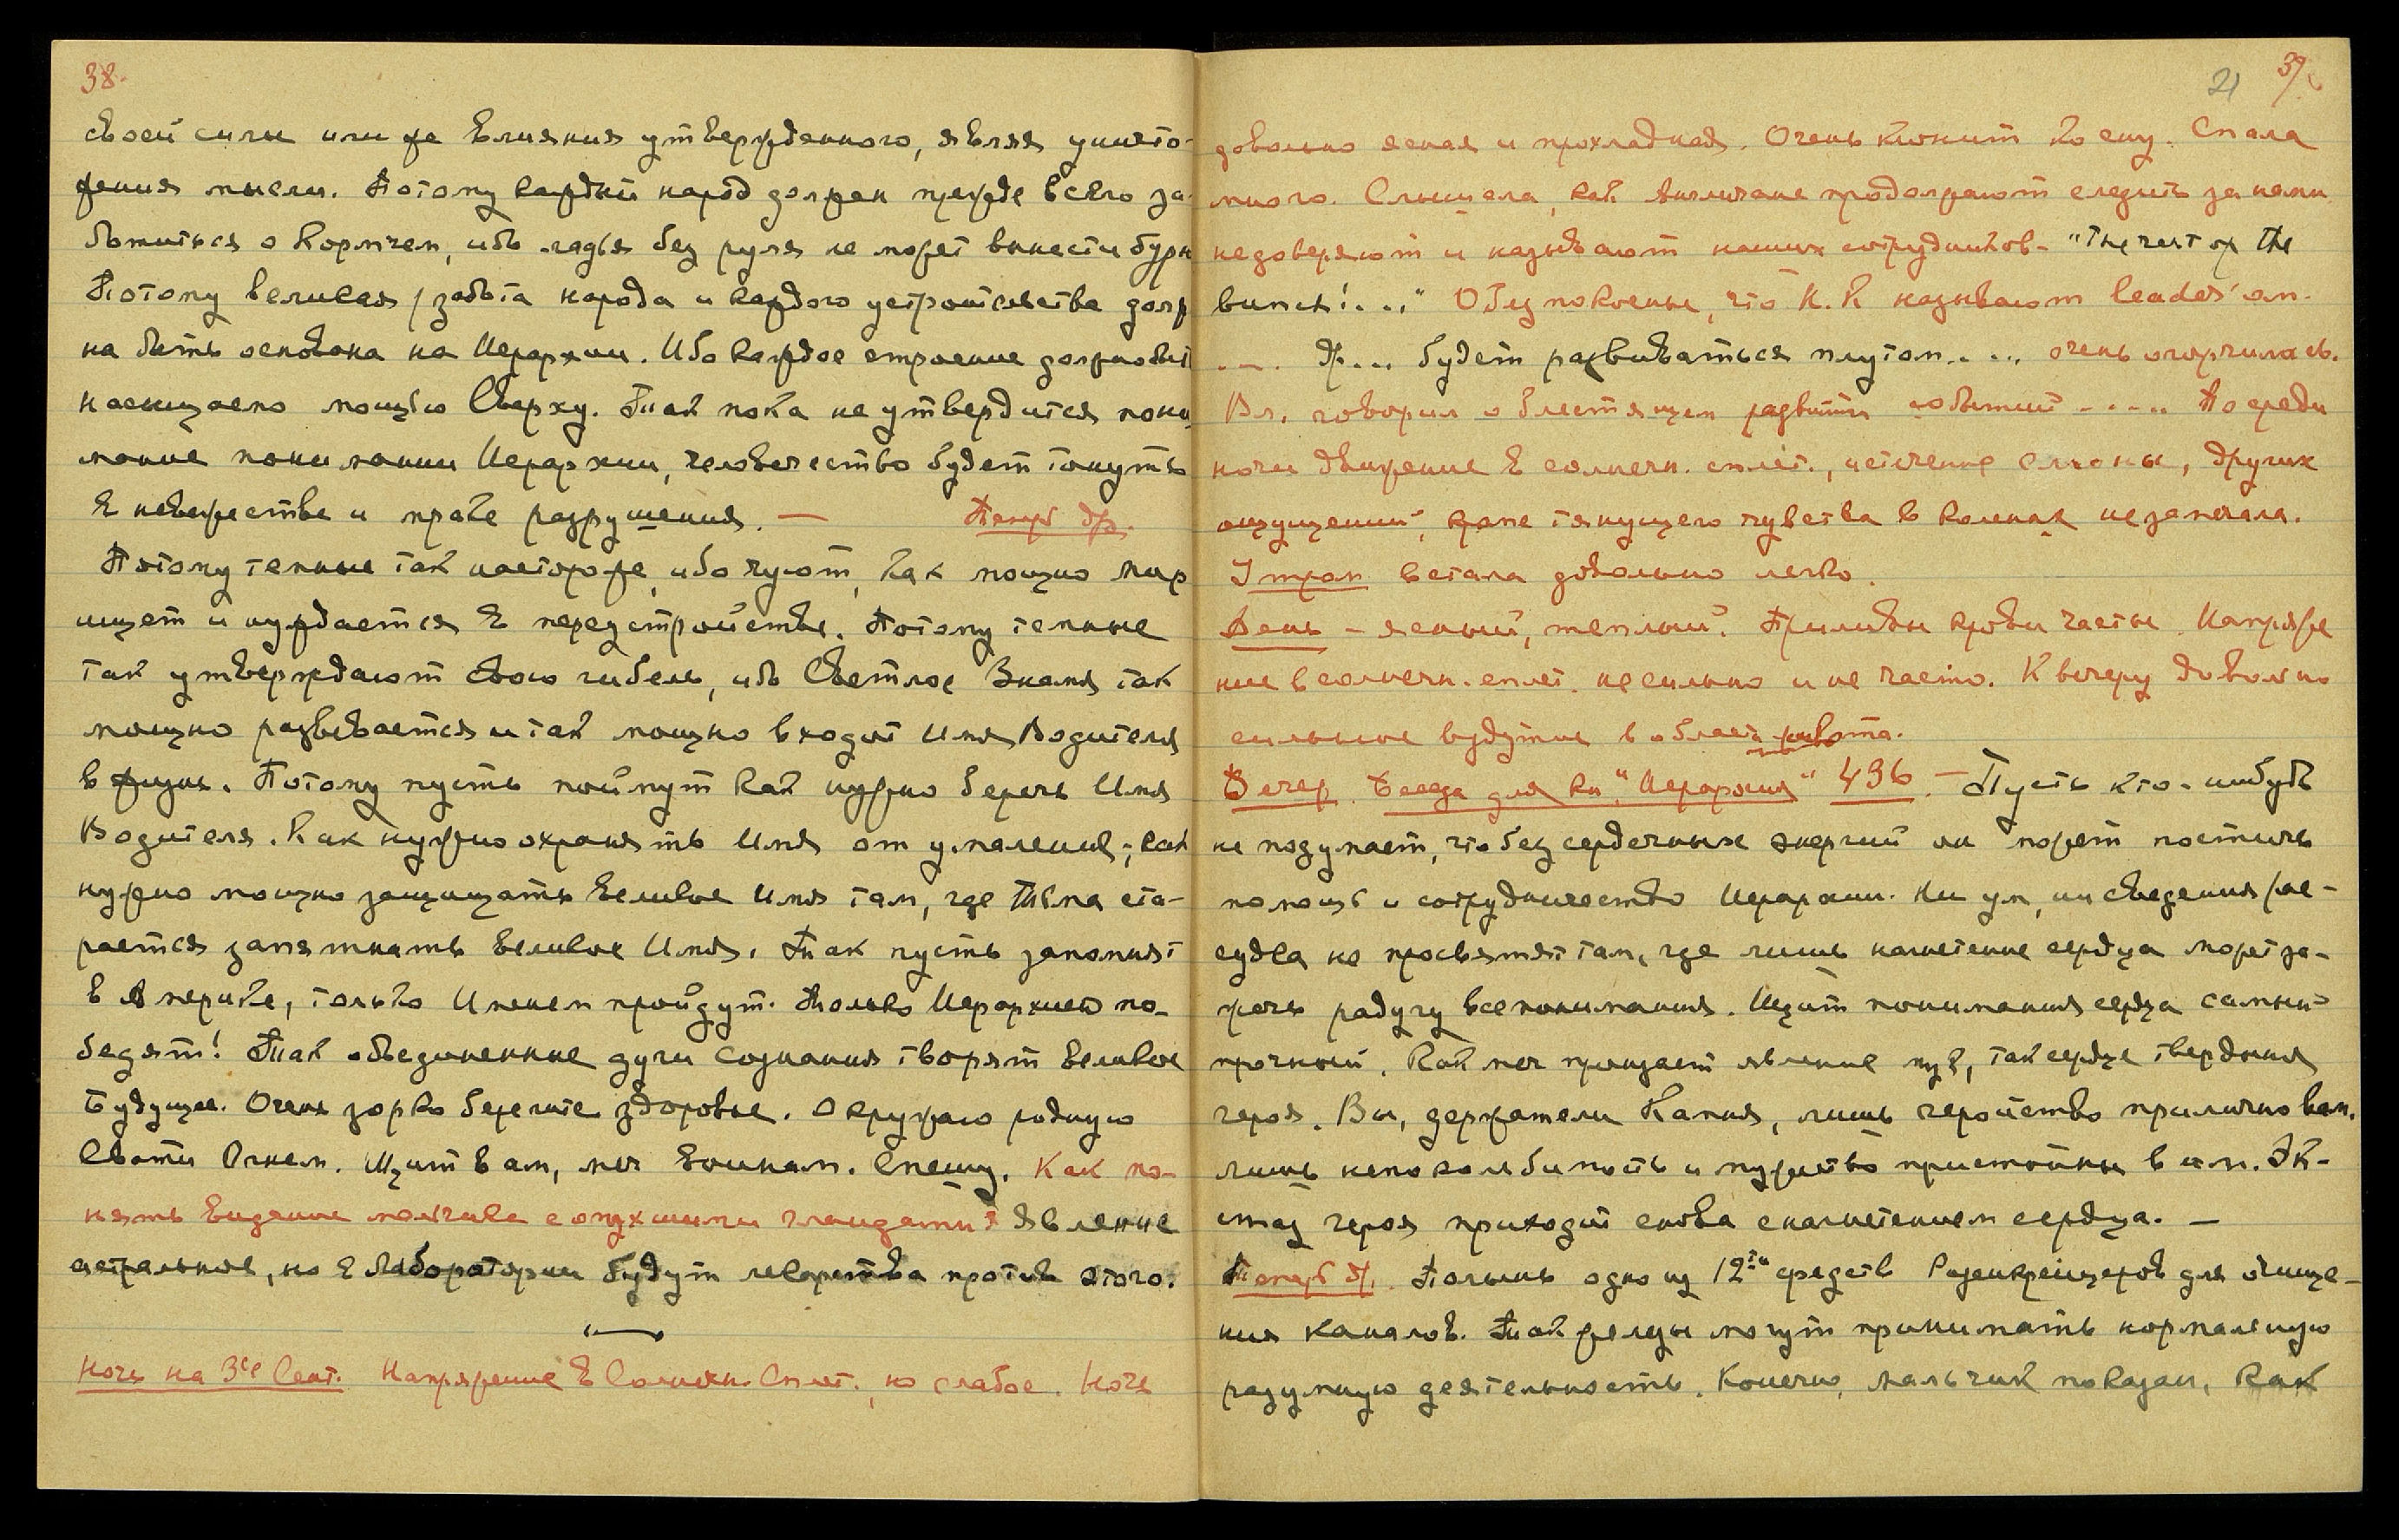 38.
своей силы или же влияния утвержденного, являя уничто-
жения мысли. Потому каждый народ должен прежде всего за-
ботиться о Кормчем, ибо ладья без руля не может вынести бури
Потому великая забота народа и каждого устройства долж
на быть основана на Иерархии. Ибо каждое строение должно быть
насыщаемо мощью Сверху. Так пока не утвердится пони
мание понимании Иерархии, человечество будет тонуть
в невежестве и мраке разрушения. — Теперь др.
Потому темные так настороже, ибо чуют, как мощно мир
ищет и нуждается в переустройстве. Потому темные
так утверждают свою гибель, ибо Светлое Знамя так
мощно развевается и так мощно входит Имя Водителя
в жизнь. Потому пусть поймут как нужно беречь Имя
Водителя. Как нужно охранять Имя от умаления; как
нужно мощно защищать Великое Имя там, где тьма ста-
рается запятнать Великое Имя. Так пусть запомнят
в Америке, только Именем пройдут. Только Иерархией по-
бедят! Так объединенные дуги сознания творят великое
Будущее. Очень зорко берегите здоровье. Окружаю родную
Свати Огнем. Щит вам, меч воинам. Спешу. Как по-
нять видение мальчика с опухшими гландами? Явление
астральное, но в Лаборатории будут лекарства против этого.
Ночь на 3ье Сент. Напряжение в Солнечн. Сплет., но слабое. Ночь
21 39.
довольно ясная и прохладная. Очень клонит ко сну. Спала
много. Слышала, как Англичане продолжают следить за нами
недоверяют и называют наших сотрудников - "The rest of the
bunch!..." Обеспокоены, что Н.К называют leader'ом.
... Ж... будет развиваться плутом.... очень огорчилась.
Вл. говорил о блестящем развитии событий ..... Посреди
ночи движение в солнечн. сплет., истечение слюны, других
ощущений, кроме тянущего чувства в коленах не замечала.
Утром встала довольно легко.
День - ясный, теплый. Приливы крови часты. Напряже
ние в солнечн. сплет. не сильно и не часто. К вечеру довольно
сильное вздутие в области живота.
Вечер. Беседа для кн. "Иерархия" 436. — Пусть кто-нибудь
не подумает, что без сердечных энергий он может постичь
помощь и сотрудничество Иерархии. Ни ум, ни сведения рас-
судка не просветят там, где лишь нагнетение сердца может за-
жечь радугу всепонимания. Щит понимания сердца самый
прочный. Как меч прощает явление пут, так сердце твердыня
героя. Вы, держатели Камня, лишь геройство прилично вам.
лишь непоколебимость и мужество пристойны вам. Эк-
стаз героя приходит снова с нагнетением сердца. —
Теперь др. Полынь одно из 12ти средств Розенкрейцеров для очище-
ния каналов. Так железы могут принимать нормальную
разумную деятельность. Конечно, мальчик показан, как